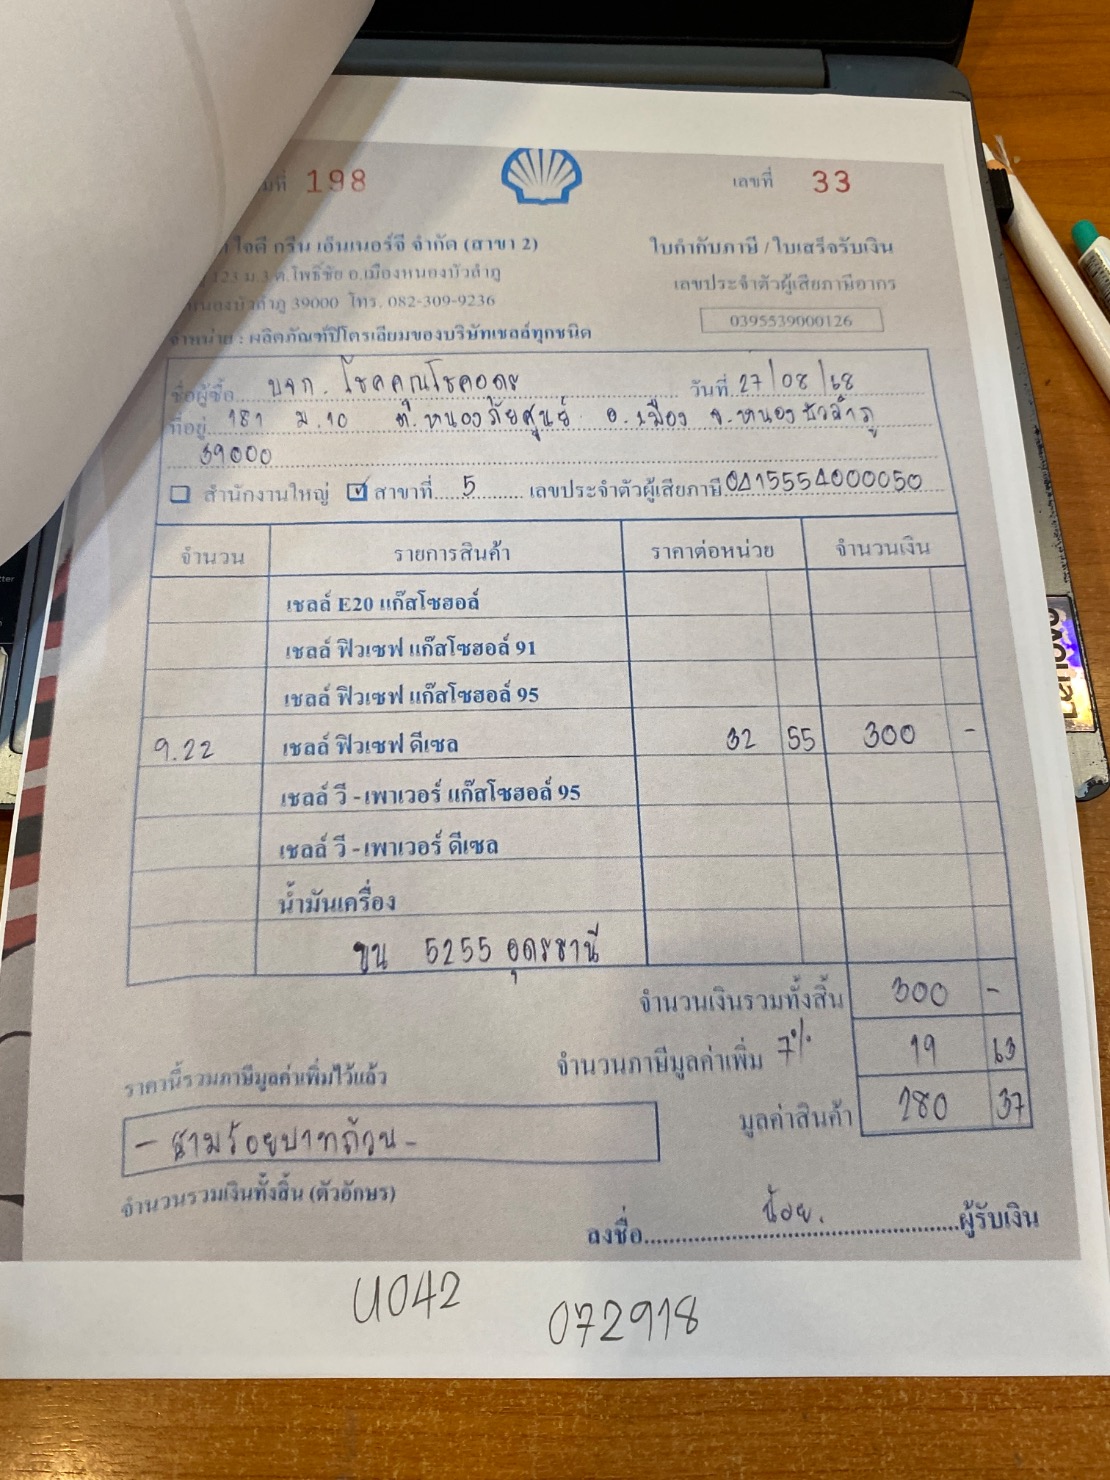 ที่ 198
เลขที่ 33
ใจดี กรีน เอ็นเนอร์จี จำกัด (สาขา 2)
ใบกำกับภาษี / ใบเสร็จรับเงิน
123 ม.3 ต.โพธิ์ชัย อ.เมืองหนองบัวลำภู
เลขประจำตัวผู้เสียภาษีอากร
หนองบัวลำภู 39000 โทร. 082-309-9236
0395539000126
จำหน่าย : ผลิตภัณฑ์ปิโตรเลียมของบริษัทเชลล์ทุกชนิด
ชื่อผู้ซื้อ บจก. โชคคูณโชคอุดร วันที่ 27/08/68
ที่อยู่ 181 ม.10 ต.หนองภัยศูนย์ อ.เมือง จ.หนองบัวลำภู
39000
สำนักงานใหญ่ สาขาที่ 5 เลขประจำตัวผู้เสียภาษี 0415554000050
จำนวน รายการสินค้า ราคาต่อหน่วย จำนวนเงิน
เชลล์ E20 แก๊สโซฮอล์
เชลล์ ฟิวเซฟ แก๊สโซฮอล์ 91
เชลล์ ฟิวเซฟ แก๊สโซฮอล์ 95
9.22 เชลล์ ฟิวเซฟ ดีเซล 32 55 300 -
เชลล์ วี - เพาเวอร์ แก๊สโซฮอล์ 95
เชลล์ วี - เพาเวอร์ ดีเซล
น้ำมันเครื่อง
ขน 5255 อุดรธานี
จำนวนเงินรวมทั้งสิ้น 300 -
จำนวนภาษีมูลค่าเพิ่ม 7% 19 63
ราคานี้รวมภาษีมูลค่าเพิ่มไว้แล้ว
มูลค่าสินค้า 280 37
- สามร้อยบาทถ้วน -
จำนวนรวมเงินทั้งสิ้น (ตัวอักษร)
ลงชื่อ น้อย. ผู้รับเงิน
U042
072918
Lenovo